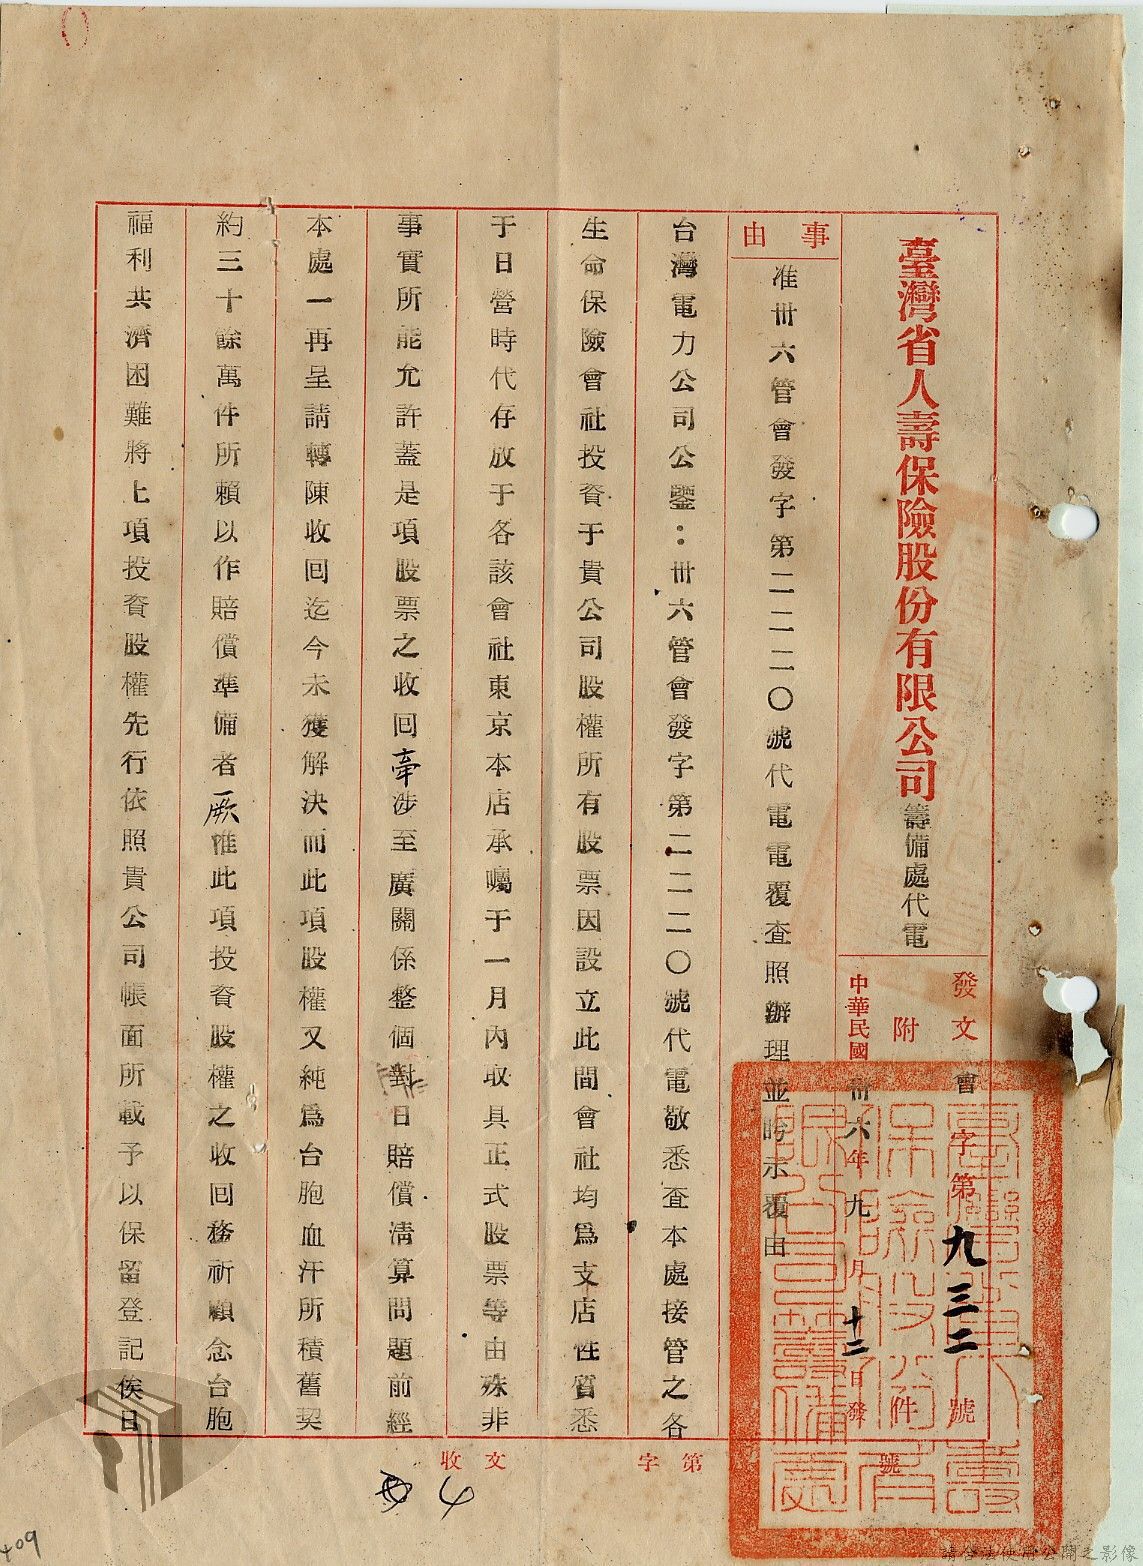 臺灣省人壽保險股份有限公司籌備處代電
發文會字第九三二號
附件
中華民國卅六年九月十二日發
事由
准卅六管會發字第二二二〇號代電電覆查照辦理並盼示覆由
台灣電力公司公鑒：卅六管會發字第二二二〇號代電敬悉查本處接管之各
生命保險會社投資于貴公司股權所有股票因設立此間會社均爲支店性質悉
于日營時代存放于各該會社東京本店承囑于一月內取具正式股票等由殊非
事實所能允許蓋是項股票之收回牽涉至廣關係整個對日賠償淸算問題前經
本處一再呈請轉陳收回迄今未獲解決而此項股權又純爲台胞血汗所積舊契
約三十餘萬件所賴以作賠償準備者厥惟此項投資股權之收回務祈顧念台胞
福利共濟困難將上項投資股權先行依照貴公司帳面所載予以保留登記俟日
收文 字第 號
臺灣省人壽
保險股份有
限公司籌備處
4
409
請合法使用公開之影像